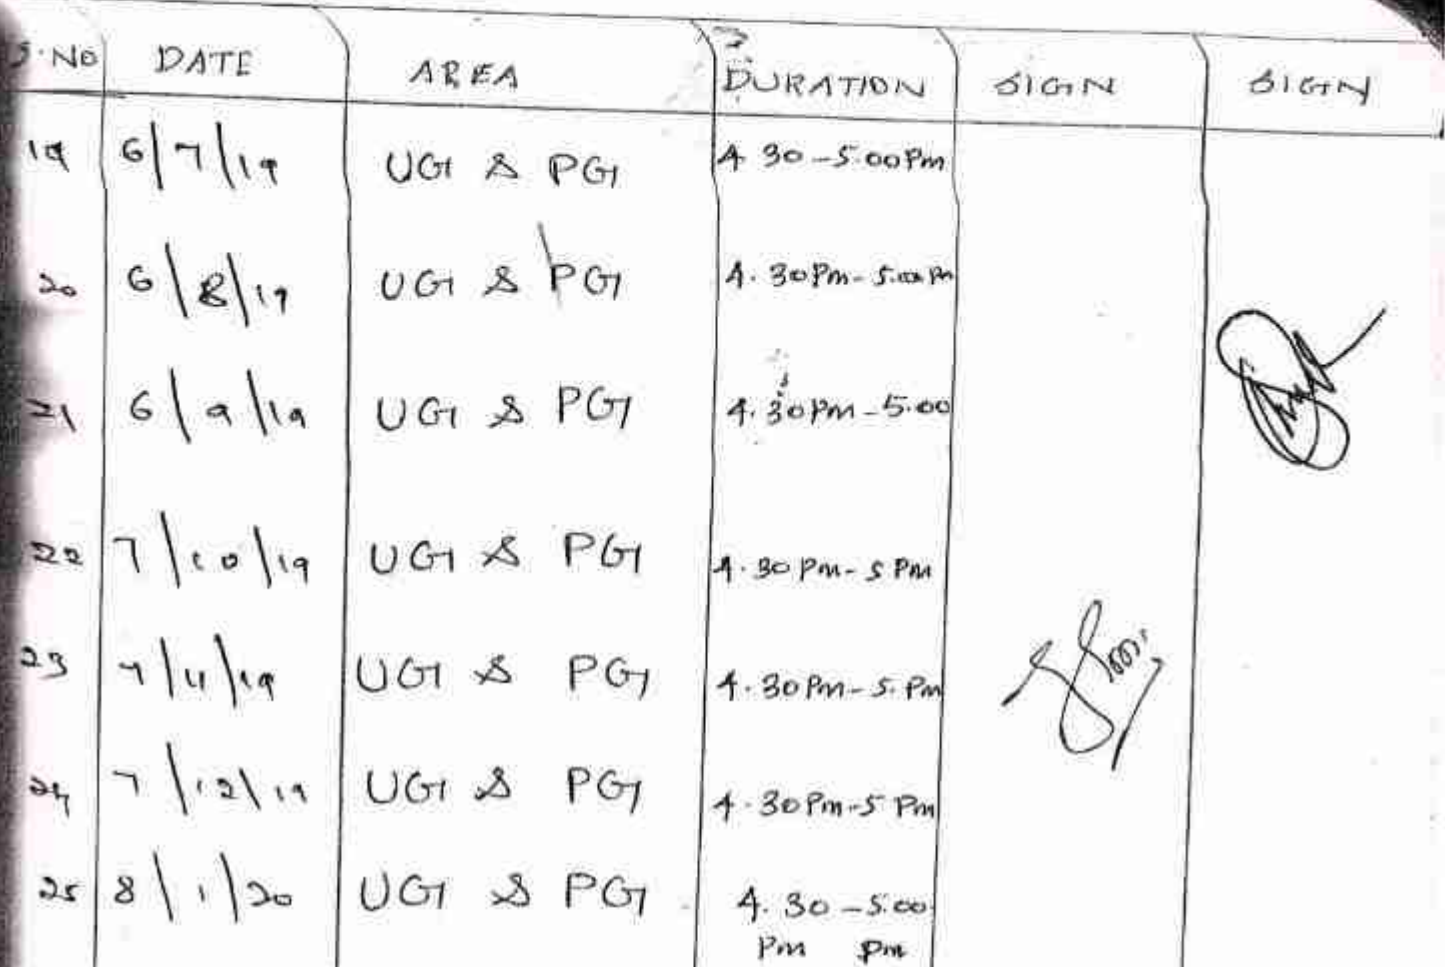 S.NO DATE AREA DURATION SIGN SIGN
19 6/7/19 UG & PG 4.30-5.00Pm
20 6/8/19 UG & PG 4.30Pm-5.00Pm
21 6/9/19 UG & PG 4.30Pm-5.00
22 7/10/19 UG & PG 4.30Pm-5Pm
23 7/11/19 UG & PG 4.30Pm-5.Pm
24 7/12/19 UG & PG 4.30Pm-5Pm
25 8/1/20 UG & PG 4.30-5.00
Pm Pm